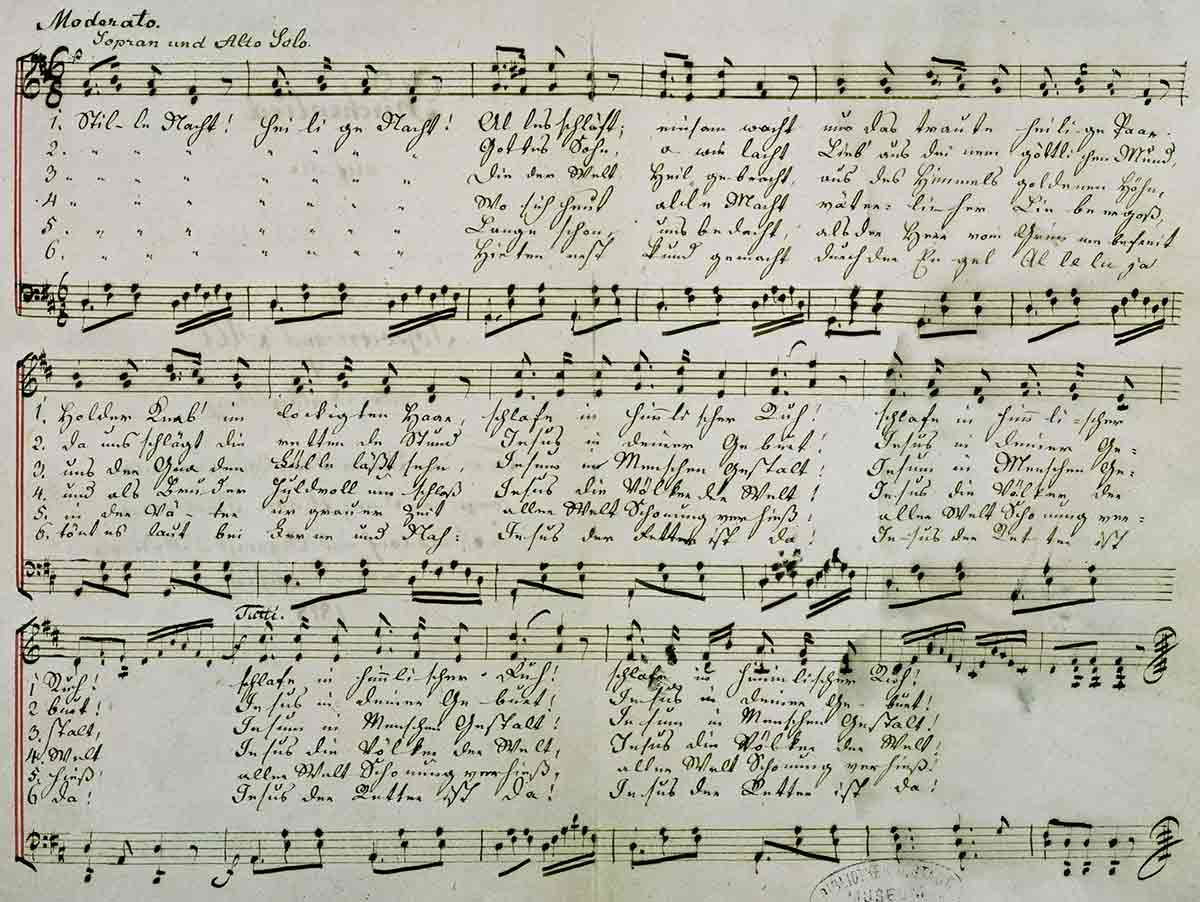 Moderato.
Sopran und Alto Solo.
1. Stil-le Nacht! Hei li ge Nacht! Al les schläft; einsam wacht nur das traute heilige Paar.
2. " " " " " " " Gottes Sohn, o wie lacht Lieb' aus dei nem göttlichen Mund,
3 " " " " " " " Die der Welt Heil gebracht, aus des Himmels goldenen Höhn,
4 " " " " " " " Wo sich heut alle Macht väter-licher Lie be ergoß,
5. " " " " " " " Lange schon, uns bedacht, als der Herr vom Grimme befreit
6. " " " " " " " Hirten erst kund gemacht durch der En gel Al le lu, ja
1. Holder Knab' im lockigten Haar, schlafe in himmlischer Ruh! schlafe in himm li-scher
2. da uns schlägt die retten de Stund Jesus in deiner Ge burt! Jesus in deiner Ge-
3. uns der Gna den Fülle läßt sehn, Jesum in Menschen Gestalt! Jesum in Menschen Ge-
4. und als Bruder huldvoll um schloß Jesus die Völker der Welt! Jesus die Völker der
5. in der Vä-ter urgrauer Zeit aller Welt Schonung verhieß! aller Welt Schonung ver-
6. tönt es laut bei Ferne und Nah: Jesus der Retter ist da! Jesus der Ret ter ist
Tutti.
1 Ruh! schlafe in himmlischer Ruh! schlafe in himmlischer Ruh!
2 burt! Jesus in deiner Ge-burt! Jesus in deiner Ge-burt!
3. stalt, Jesum in Menschen Gestalt! Jesum in Menschen Gestalt!
4. Welt Jesus die Völker der Welt, Jesus die Völker der Welt!
5. hieß! aller Welt Schonung verhieß, aller Welt Schonung verhieß!
6 da! Jesus der Retter ist da! Jesus der Retter ist da!
f
MUSEUM